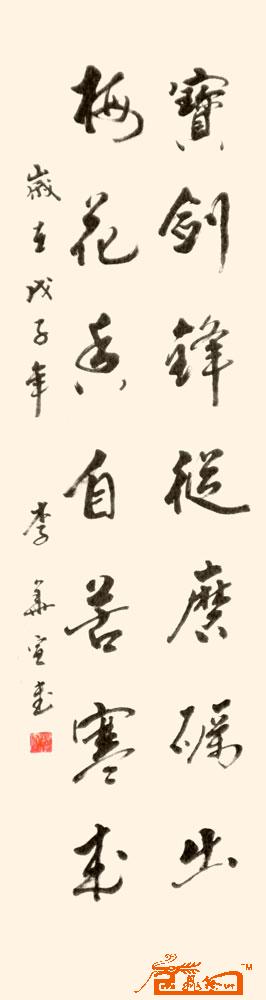 寶劍鋒從磨礪出
梅花香自苦寒來
歲在戊子年 李華宣書
TM